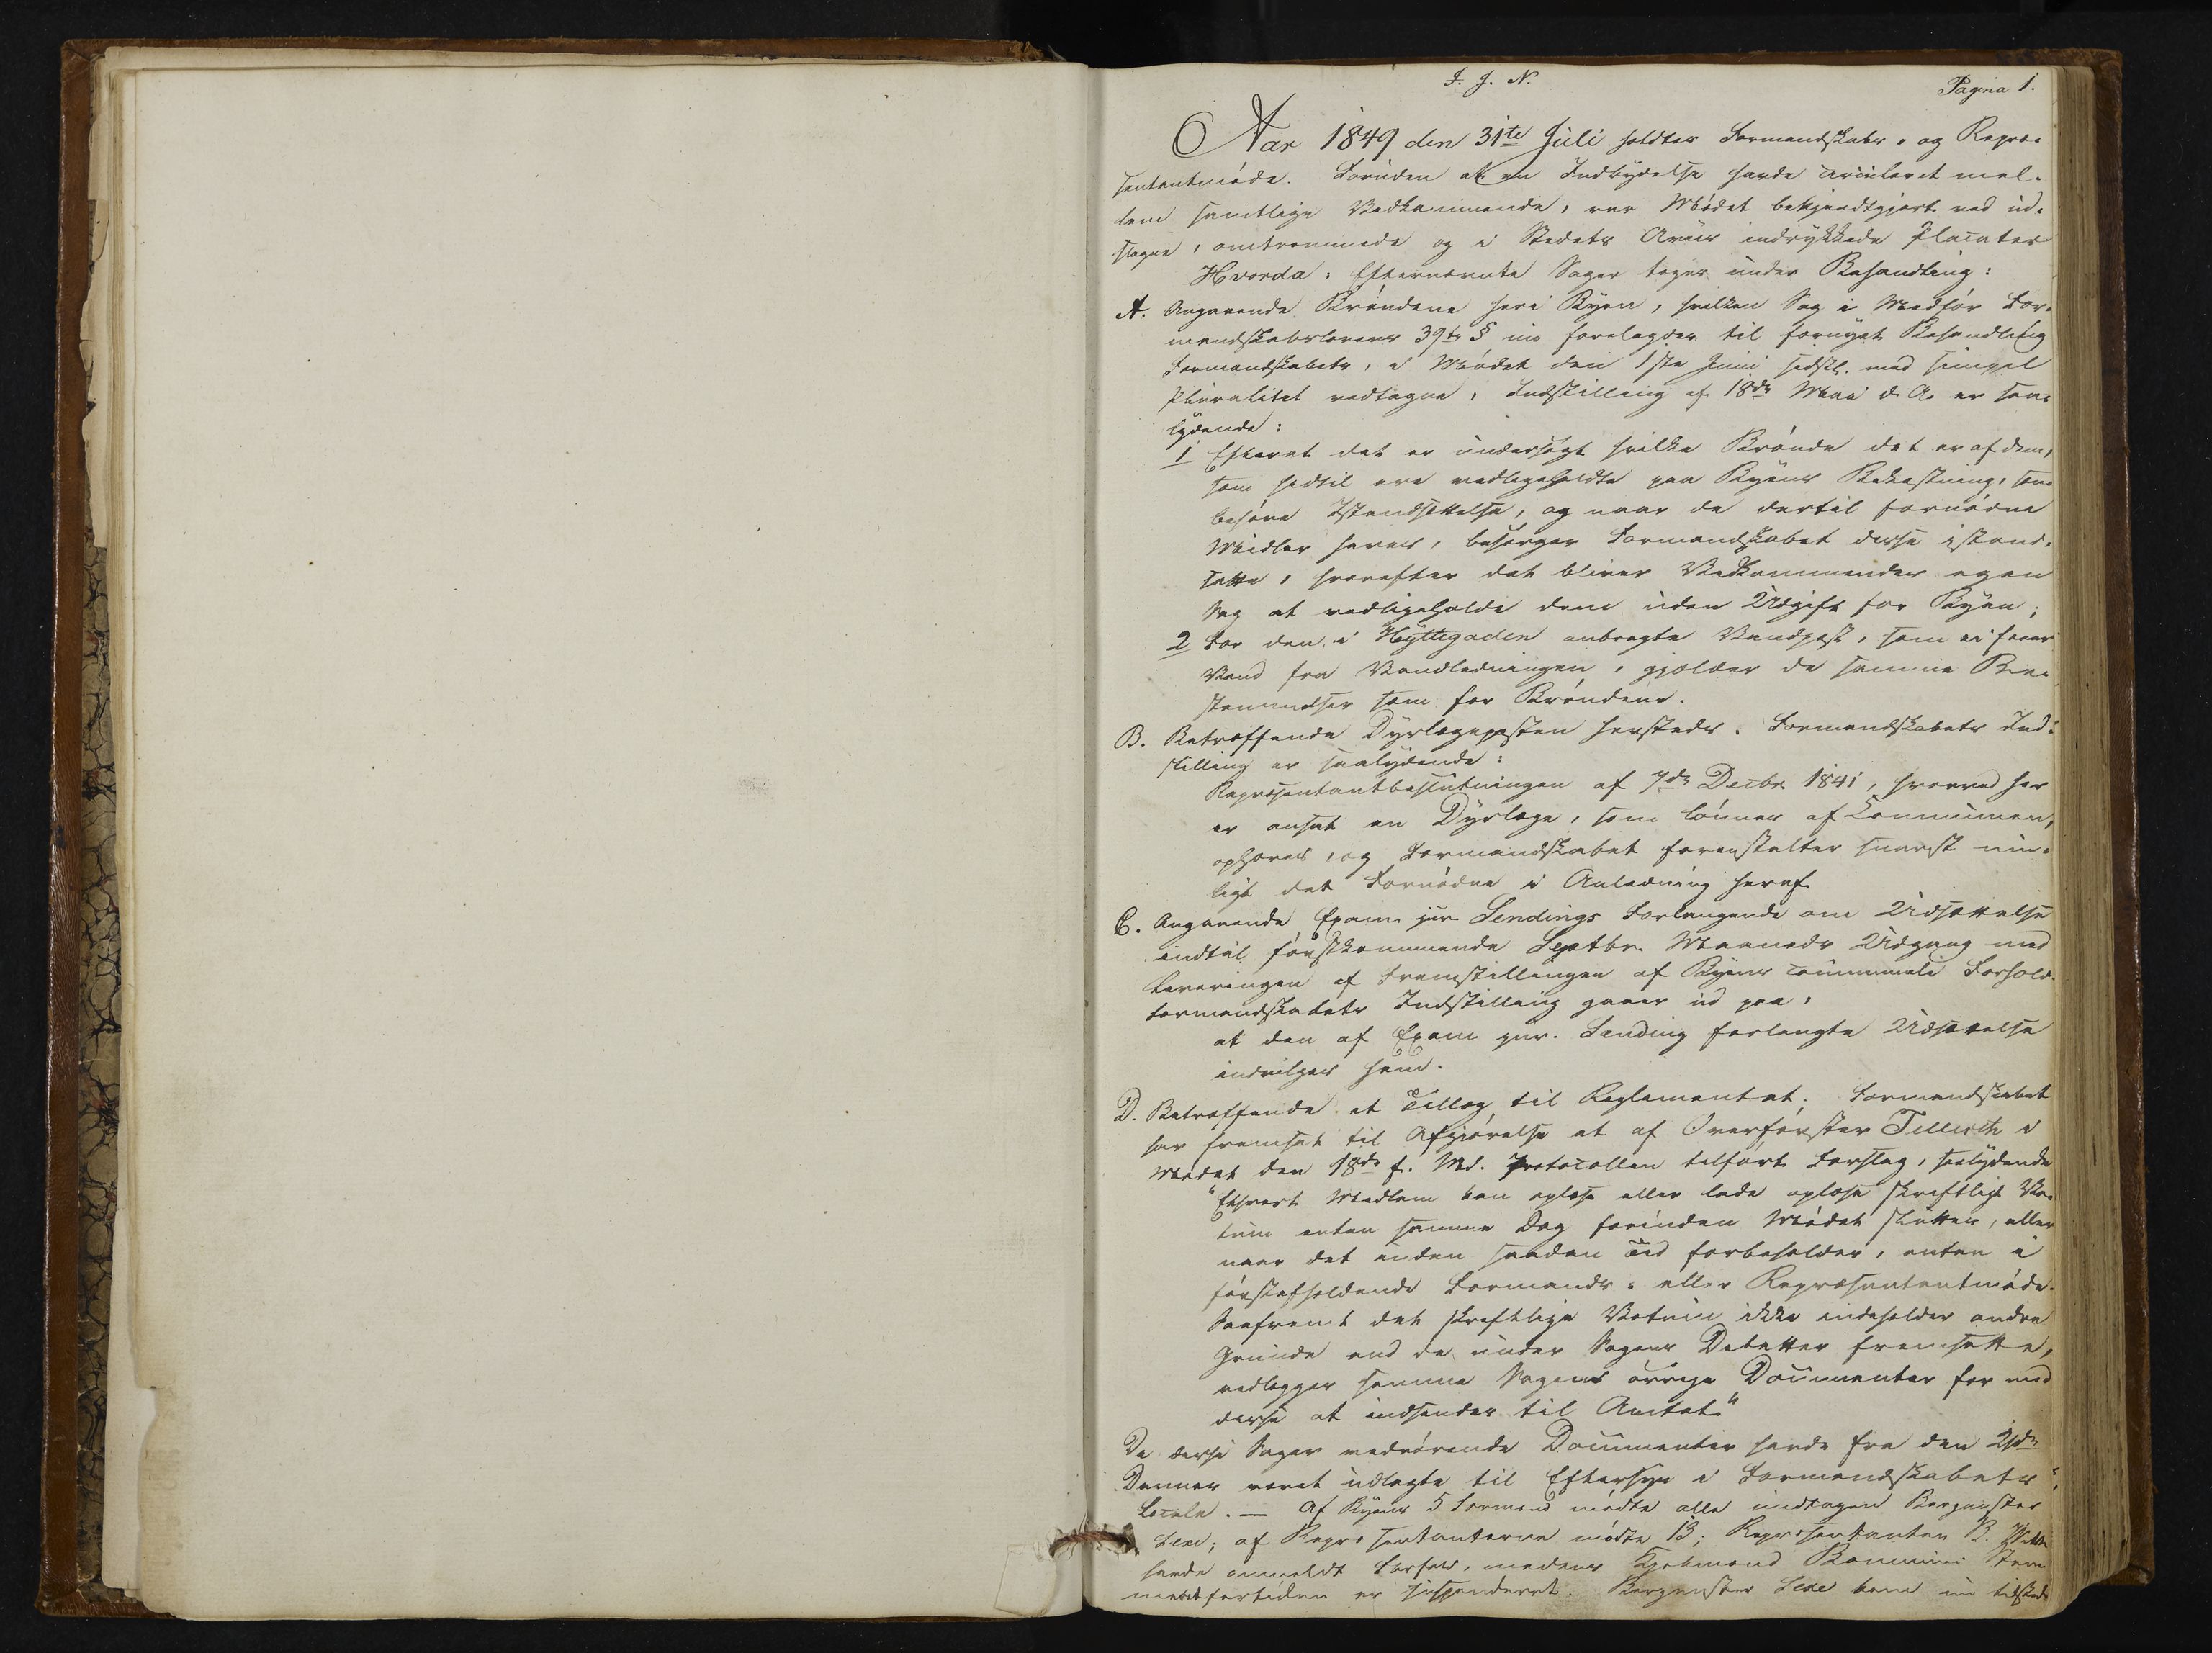 I. J. N.
Pagina 1.
Aar 1849 den 31te Juli holdtes Formandskabs- og Repræ-
sentantmøde. Foruden at en Indbydelse havde circuleret mel-
lem samtlige Vedkommende, var Mødet bekjendtgjort ved ud-
slagne, omtrommede og i Stedets Aviis indrykkede Placater
Hvorda, Efternævnte Sager toges under Behandling:
A. Angaaende Brøndene her i Byen, hvilken Sag i Medfør For-
mandskabslovens 39te § nu forelagdes til fornyet Behandling
Formandskabets, i Mødet den 1ste Juni sidstl. med simpel
Pluralitet vedtagne, Indstilling af 18de Mai d. A. er saa-
lydende:
1 Efterat det er undersøgt hvilke Brønde det er af dem,
som hidtil ere vedligeholdte paa Byens Bekostning, som
behøve Istandsættelse, og naar de dertil fornødne
Midler haves, besørger Formandskabet disse istand-
satte, hvorefter det bliver Vedkommendes egen
Sag at vedligeholde dem uden Udgift for Byen;
2 For den i Hyttegaden anbragte Vandpost, som ei faaer
Vand fra Vandledningen, gjælder de samme Be-
stemmelser som for Brøndene.
B. Betræffende Dyrlægeposten hersteds. Formandskabets Ind-
stilling er saalydende:
Repræsentantbeslutningen af 7de Decbr. 1841, hvorved her
er ansat en Dyrlæge, som lønnes af Communen,
ophæves, og Formandskabet foranstalter snarest mu-
ligt det Fornødne i Anledning heraf.
C. Angaaende Exam. jur. Sendings Forlangende om Udsættelse
indtil førstkommende Septbr. Maaneds Udgang med
Leveringen af Fremstillingen af Byens communale Forhold.
Formandskabets Indstilling gaaer ud paa,
at den af Exam. jur. Sending forlangte Udsættelse
indvilges ham.
D. Betræffende et Tillæg til Reglementet. Formandskabet
har fremsat til Afgjørelse et af Overførster Tellefsen i
Mødet den 18de f. Md. Protocollen tilført Forslag, saalydende
"Ethvert Medlem kan oplæse eller lade oplæse skriftligt Vo-
tum enten samme Dag forinden Mødet sluttes, eller
naar det inden saadan Tid forbeholdes, enten i
førstafholdende Formands- eller Repræsentantmøde.
Saafremt det skriftlige Votum ikke indeholder andre
Grunde end de under Sagens Debatter fremsatte,
vedlægges samme Sagens øvrige Documenter for med
disse at indsendes til Amtet."
De disse Sager vedrørende Documenter havde fra den
Dennes været udlagte til Eftersyn i Formandskabets
Locale. — Af Byens 5 Formænd mødte alle undtagen Bergmester
Lexe; af Repræsentanterne mødte 13; Repræsentanten B.
havde anmeldt Forfald, medens Kjøbmand Steen
fortiden er suspenderet. Bergmester Lexe kom nu tilstede